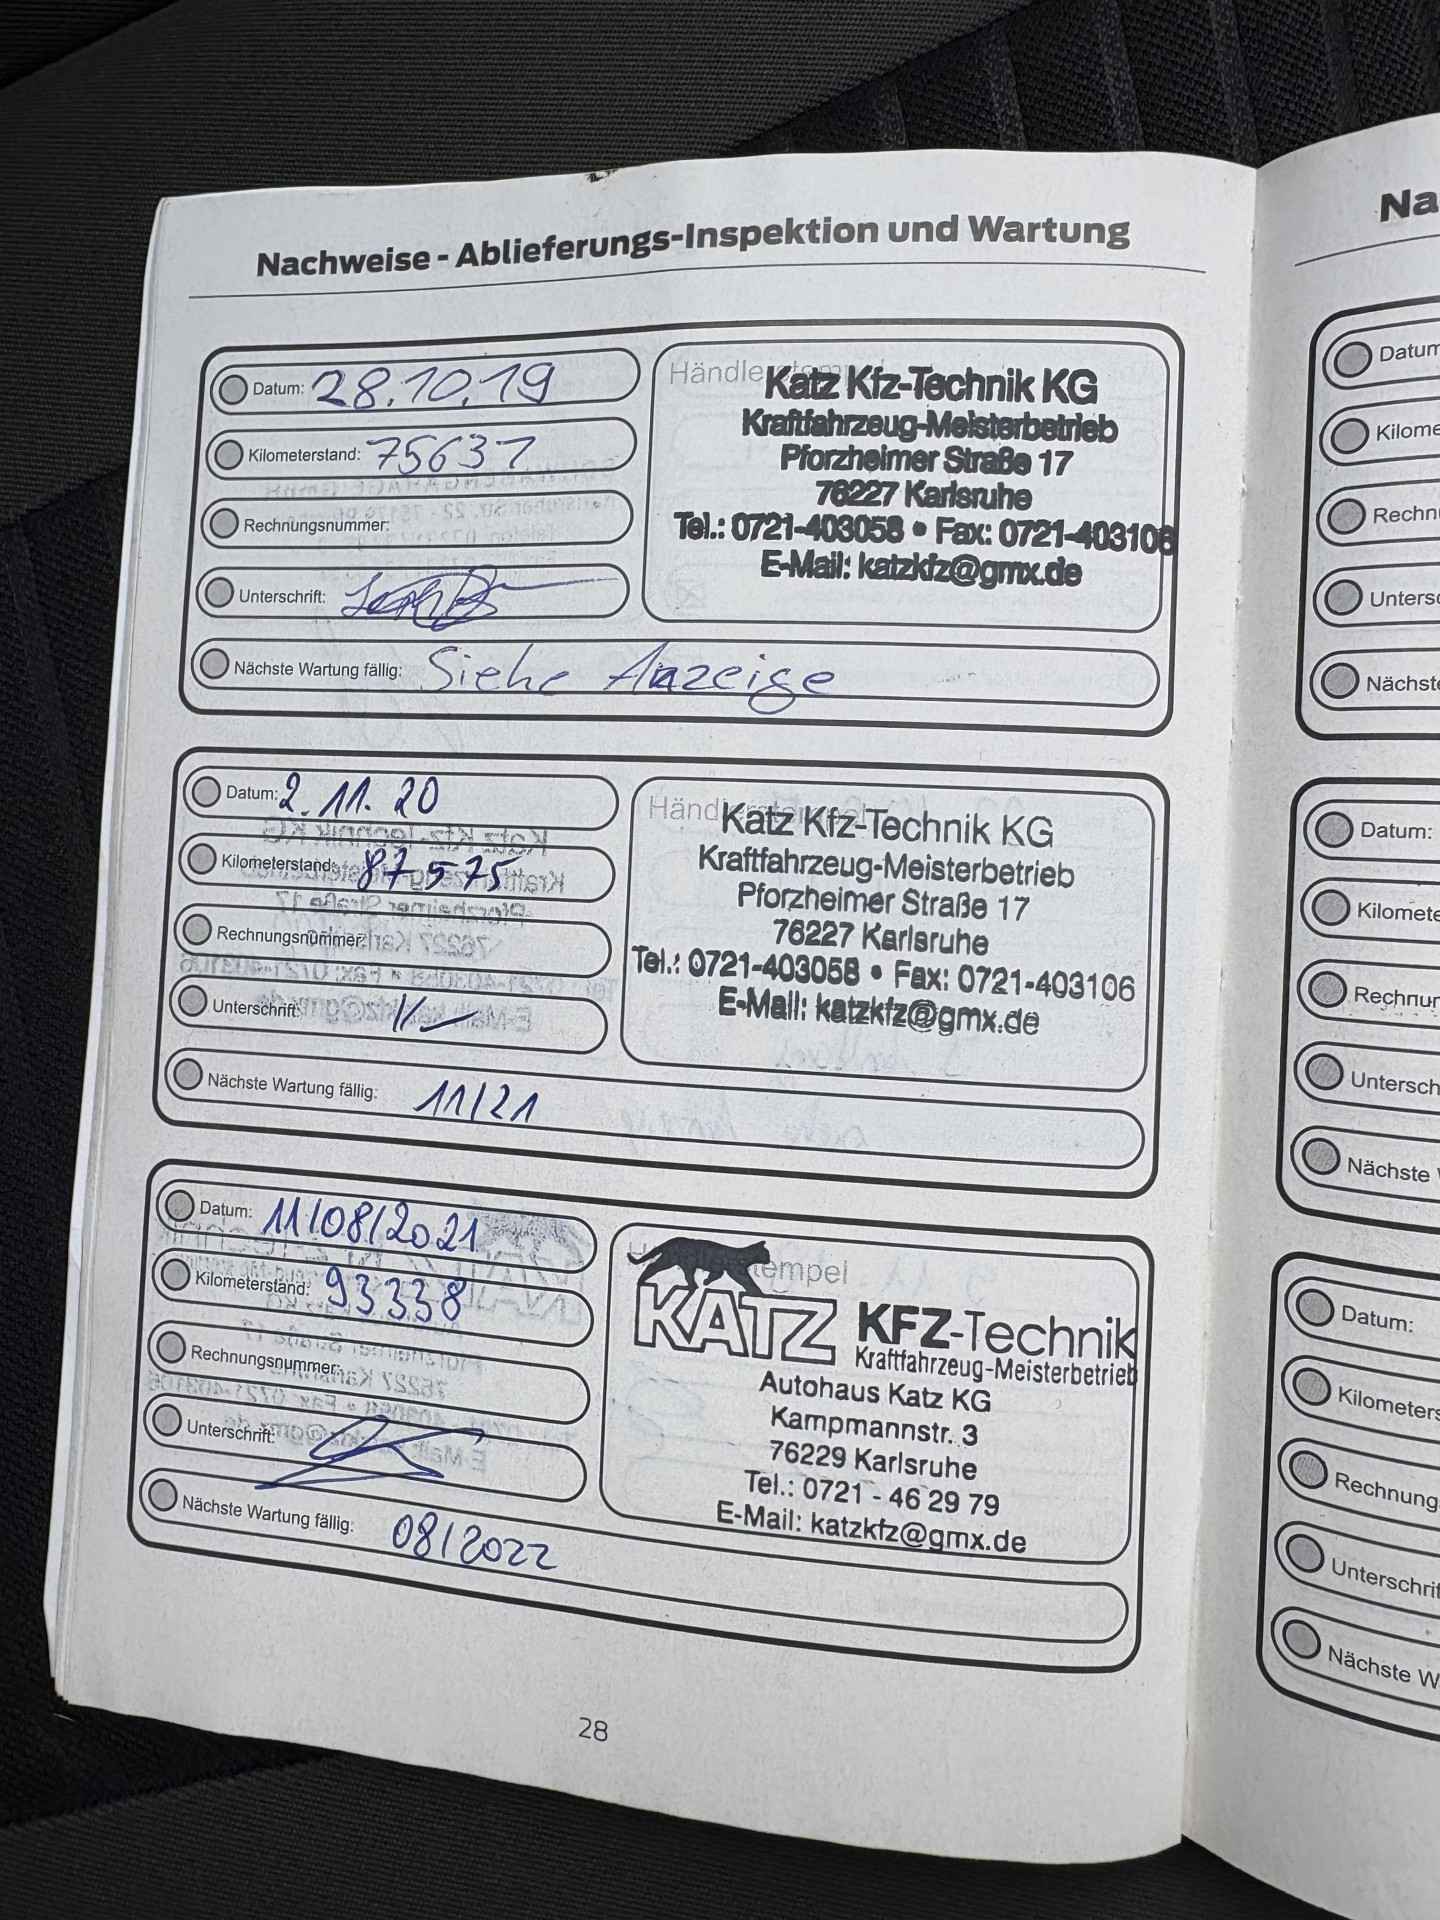 Nachweise - Ablieferungs-Inspektion und Wartung
Datum: 28.10.19
Kilometerstand: 75637
Rechnungsnummer:
Unterschrift:
Nächste Wartung fällig: Siehe Anzeige
Katz Kfz-Technik KG
Kraftfahrzeug-Meisterbetrieb
Pforzheimer Straße 17
76227 Karlsruhe
Tel.: 0721-403058 • Fax: 0721-403106
E-Mail: katzkfz@gmx.de
Datum: 2.11.20
Kilometerstand: 87575
Rechnungsnummer:
Unterschrift:
Nächste Wartung fällig: 11/21
Händlerstempel
Katz Kfz-Technik KG
Kraftfahrzeug-Meisterbetrieb
Pforzheimer Straße 17
76227 Karlsruhe
Tel.: 0721-403058 • Fax: 0721-403106
E-Mail: katzkfz@gmx.de
Datum: 11/08/2021
Kilometerstand: 93338
Rechnungsnummer:
Unterschrift:
Nächste Wartung fällig: 08/2022
KATZ KFZ-Technik
Kraftfahrzeug-Meisterbetrieb
Autohaus Katz KG
Kampmannstr. 3
76229 Karlsruhe
Tel.: 0721 - 46 29 79
E-Mail: katzkfz@gmx.de
28
Na
Datum
Kilome
Rechn
Unters
Nächste
Datum:
Kilomete
Rechnur
Untersch
Nächste
Datum:
Kilometers
Rechnung
Unterschrif
Nächste W